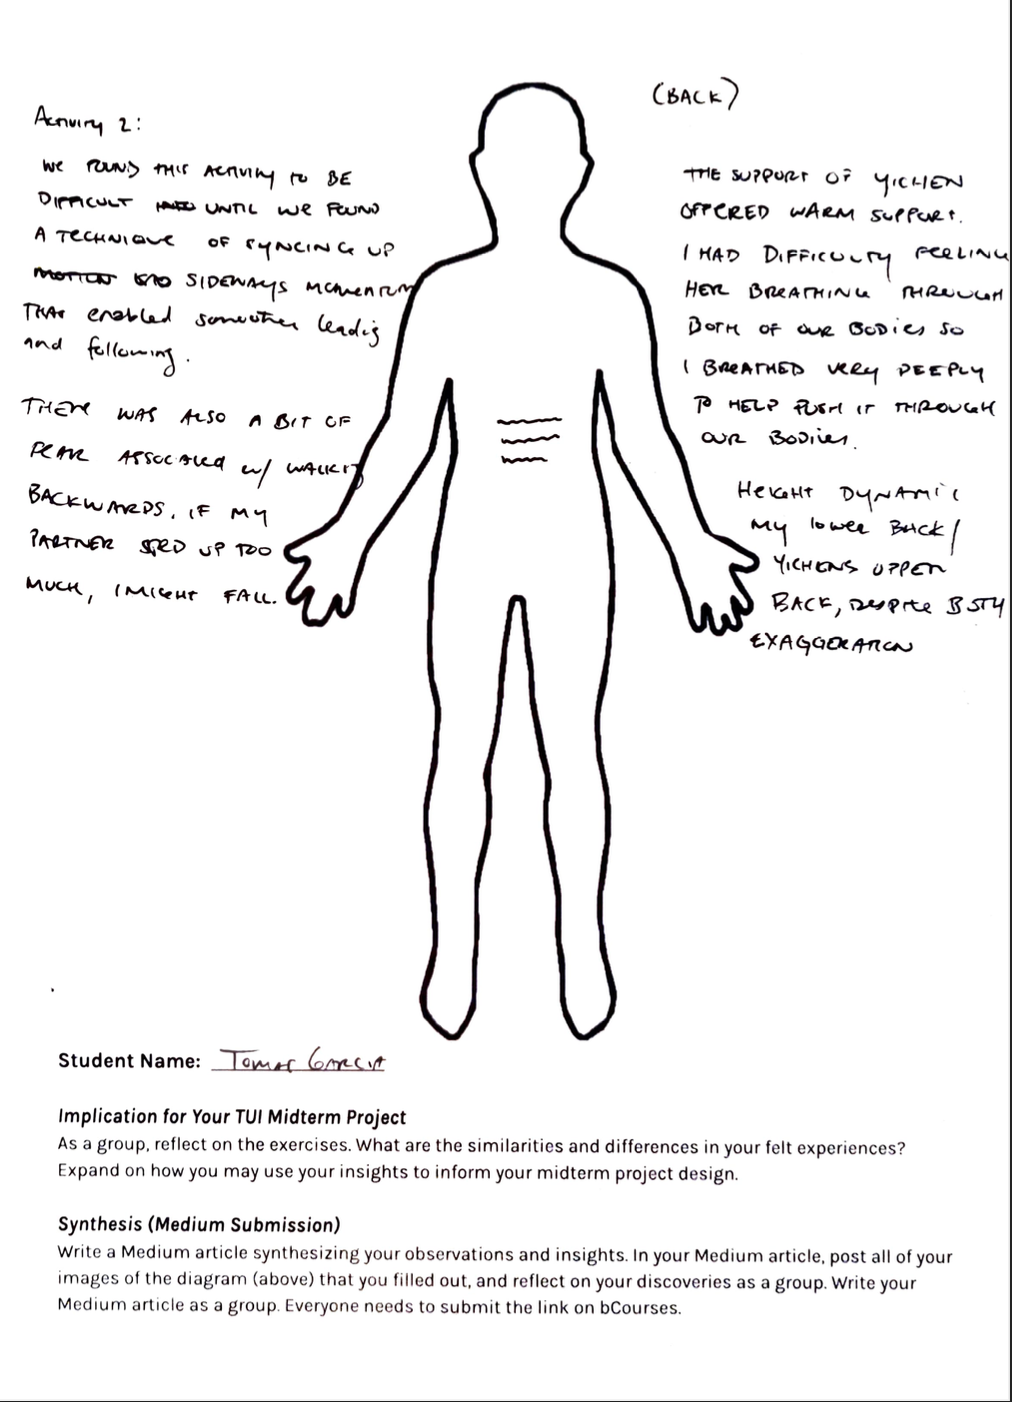 (BACK)
Activity 2:
WE FOUND THIS ACTIVITY TO BE
DIFFICULT UNTIL WE FOUND
A TECHNIQUE OF SYNCING UP
SIDEWAYS MOMENTUM
THAT enabled smoother leading
and following.
THERE WAS ALSO A BIT OF
FEAR ASSOCIATED w/ WALKING
BACKWARDS. IF MY
PARTNER SPED UP TOO
MUCH, I MIGHT FALL.
THE SUPPORT OF YICHEN
OFFERED WARM SUPPORT.
I HAD DIFFICULTY FEELING
HER BREATHING THROUGH
BOTH OF OUR BODIES SO
I BREATHED VERY DEEPLY
TO HELP PUSH IT THROUGH
OUR BODIES.
HEIGHT DYNAMIC
MY lower BACK/
YICHENS UPPER
BACK, DESPITE BSTY
EXAGGERATION
Student Name: Tomas GARCIA
Implication for Your TUI Midterm Project
As a group, reflect on the exercises. What are the similarities and differences in your felt experiences?
Expand on how you may use your insights to inform your midterm project design.
Synthesis (Medium Submission)
Write a Medium article synthesizing your observations and insights. In your Medium article, post all of your
images of the diagram (above) that you filled out, and reflect on your discoveries as a group. Write your
Medium article as a group. Everyone needs to submit the link on bCourses.